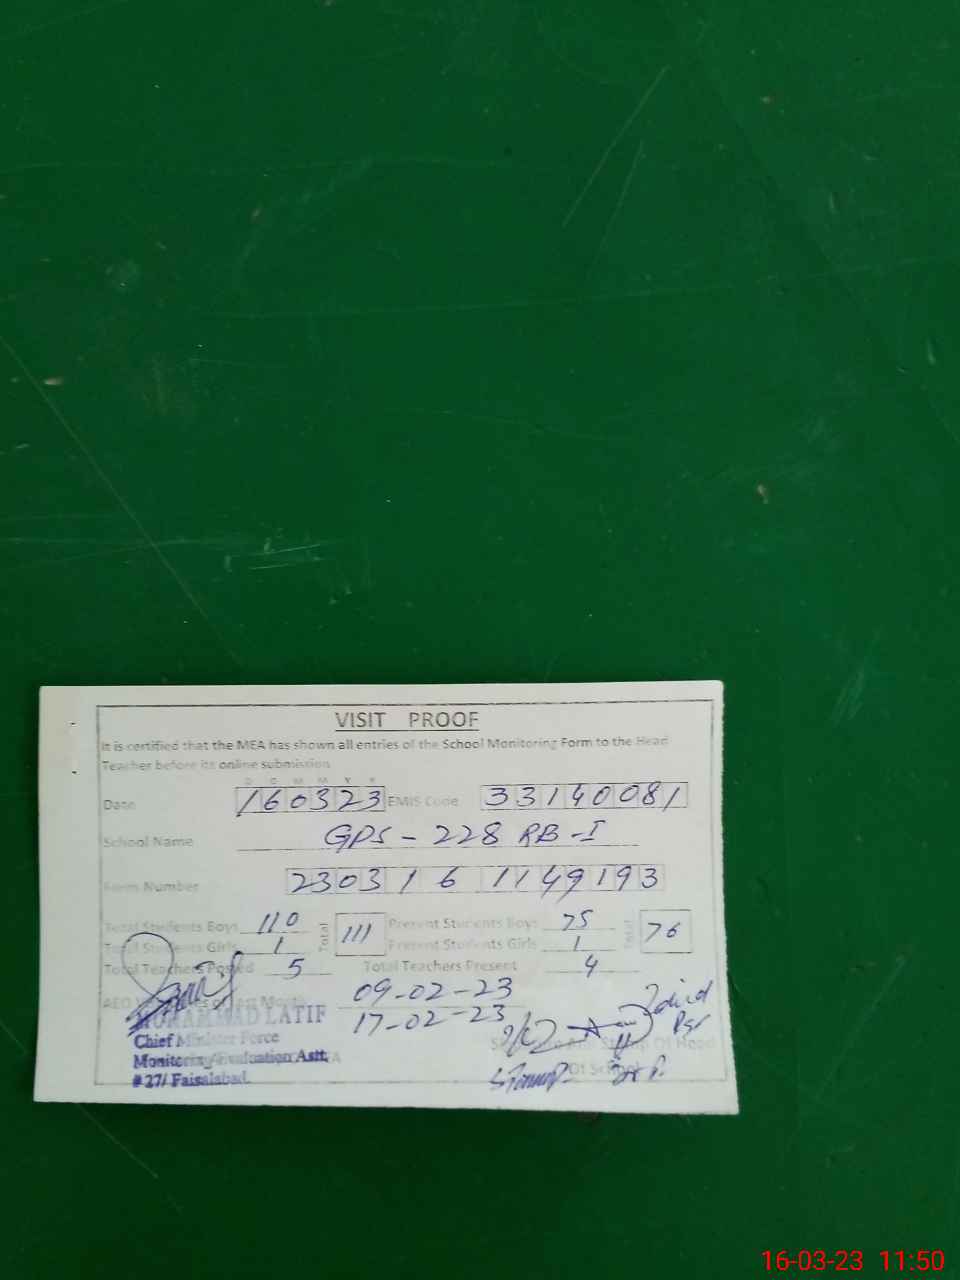 VISIT PROOF
It is certified that the MEA has shown all entries of the School Monitoring Form to the Head
Teacher before its online submission
D D M M Y Y
Date 160323 EMIS Code 33140081
School Name GPS - 228 RB - I
Form Number 2303161149193
Total Students Boys 110 Total 111 Present Students Boys 75 Total 76
Total Students Girls 1 Present Students Girls 1
Total Teachers Posted 5 Total Teachers Present 4
AEO Visit Dates of Last Month 09-02-23
17-02-23
MUHAMMAD LATIF
Chief Minister Force
Monitoring/Evaluation Astt,
# 27/ Faisalabad.
Stamp Of Head
Of School
16-03-23 11:50